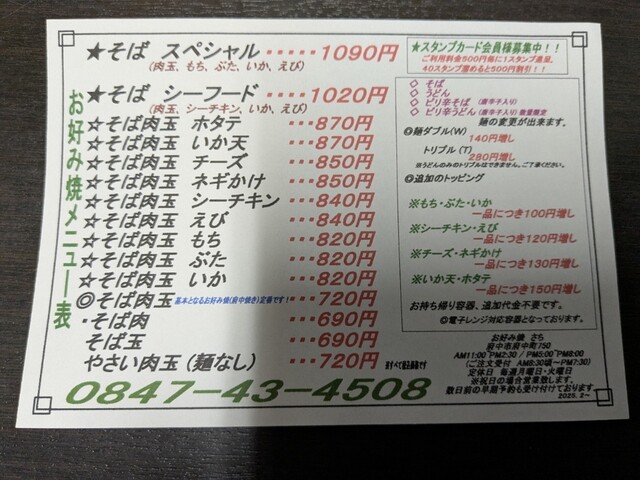 お好み焼メニュー表
★そば スペシャル ・・・・・1090円
(肉玉、もち、ぶた、いか、えび)
★そば シーフード ・・・・1020円
(肉玉、シーチキン、いか、えび)
☆そば肉玉 ホタテ ・・・870円
☆そば肉玉 いか天 ・・・870円
☆そば肉玉 チーズ ・・・850円
☆そば肉玉 ネギかけ ・・・850円
☆そば肉玉 シーチキン ・・・840円
☆そば肉玉 えび ・・・840円
☆そば肉玉 もち ・・・820円
☆そば肉玉 ぶた ・・・820円
☆そば肉玉 いか ・・・820円
◎そば肉玉 基本となるお好み焼(府中焼き)定番です! ・・・720円
・そば肉 ・・・690円
そば玉 ・・・690円
やさい肉玉(麺なし) ・・・720円 ※すべて税込価格です
0847-43-4508
★スタンプカード会員様募集中!!
ご利用料金500円毎に1スタンプ進呈。
40スタンプ溜めると500円割引!!
◇ そば
◇ うどん
◇ ピリ辛そば(唐辛子入り)
◇ ピリ辛うどん(唐辛子入り)数量限定
麺の変更が出来ます。
◎麺ダブル(W)
140円増し
トリプル(T)
280円増し
※うどんのみのトリプルはできません。ご了承ください。
◎追加のトッピング
※もち・ぶた・いか
一品につき100円増し
※シーチキン・えび
一品につき120円増し
※チーズ・ネギかけ
一品につき130円増し
※いか天・ホタテ
一品につき150円増し
お持ち帰り容器、追加代金不要です。
◎電子レンジ対応容器となっております。
お好み焼 さち
府中市府中町750
AM11:00~PM2:30 / PM5:00~PM8:00
(ご注文受付 AM9:30頃~PM7:30)
定休日 毎週月曜日・火曜日
※祝日の場合営業致します。
数日前の早期予約も受け付けております
2025.2~